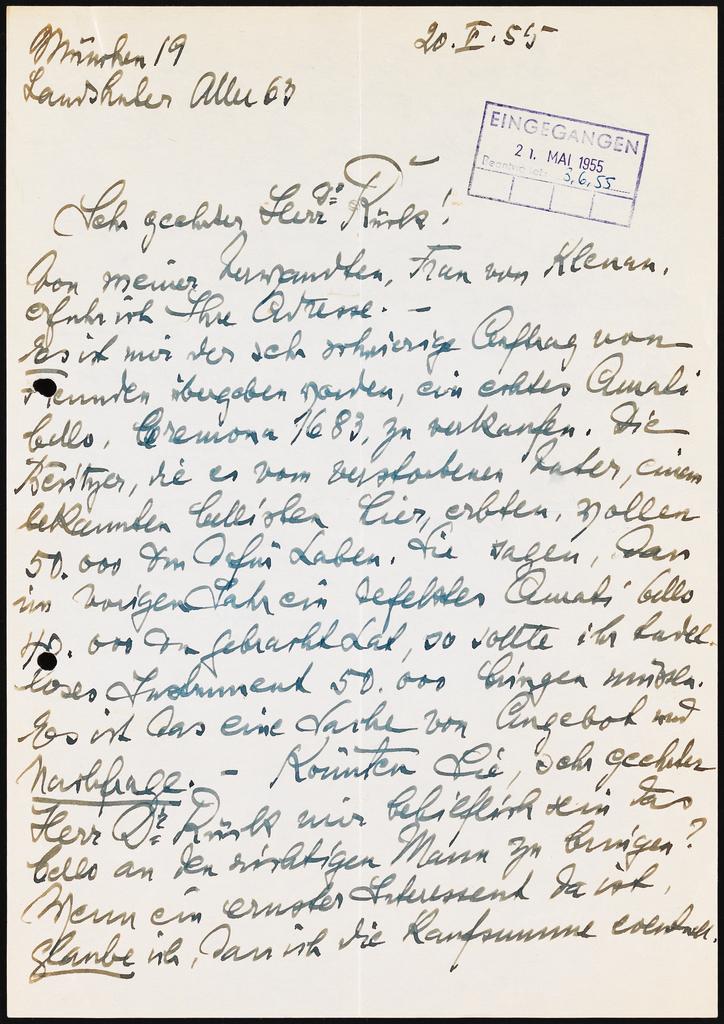 München 19
20. V. 55
Landshuter Allee 63
EINGEGANGEN
21. MAI 1955
3.6.55
Sehr geehrter Herr Dr. Rück!
Von meiner Verwandten, Frau von Klenau,
erfuhr ich Ihre Adresse. –
Es ist mir der sehr schwierige Auftrag von
Freunden übergeben worden, ein echtes Amati
Cello, Cremona 1683, zu verkaufen. Die
Besitzer, die es vom verstorbenen Vater, einem
bekannten Cellisten hier, erbten, wollen
50.000 DM dafür haben. Sie sagen, dass
im vorigen Jahr ein defektes Amati Cello
40.000 DM gebracht hat, so sollte ihr tadel-
loses Instrument 50.000 bringen müssen.
Es ist das eine Sache von Angebot und
Nachfrage. – Könnten Sie, sehr geehrter
Herr Dr. Rück mir behilflich sein das
Cello an den richtigen Mann zu bringen?
Wenn ein ernster Interessent da ist,
glaube ich, dass ich die Kaufsumme eventuell.